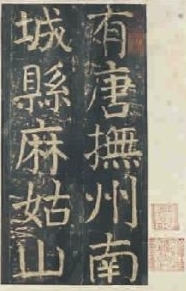 有唐撫州南
城縣麻姑山